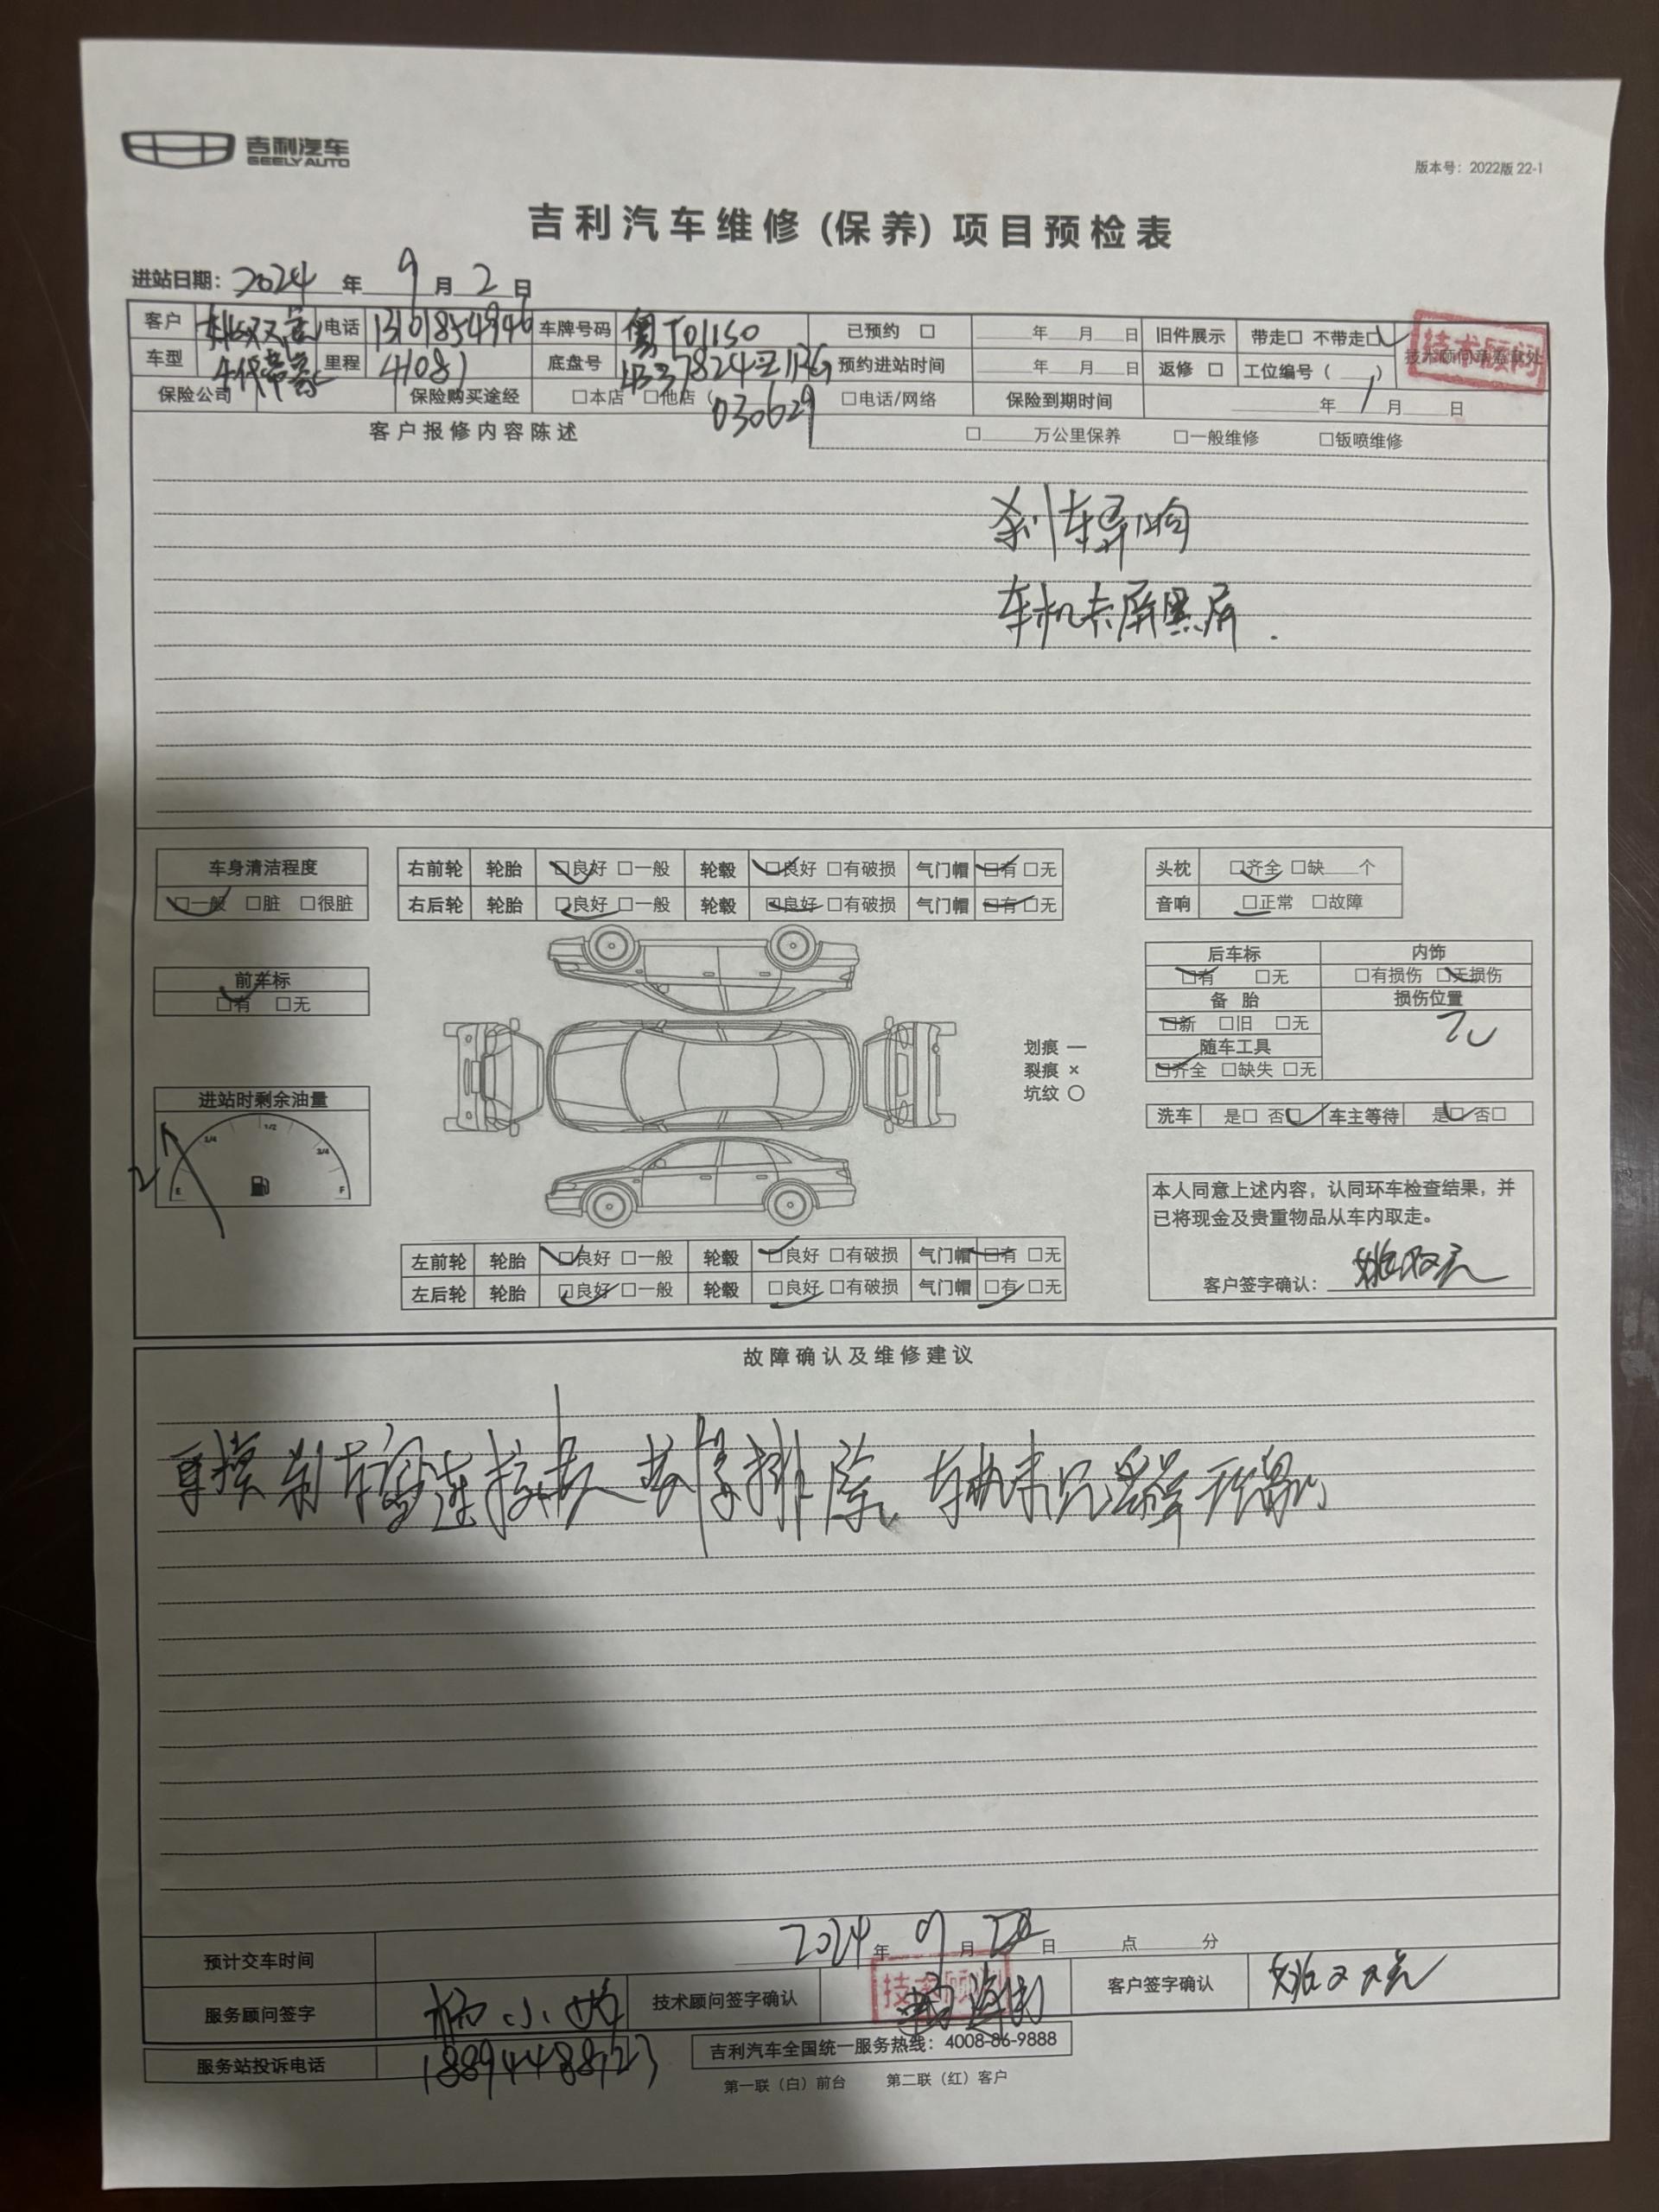 吉利汽车
GEELY AUTO
版本号：2022版 22-1
吉利汽车维修(保养)项目预检表
进站日期：2024年9月2日
客户 电话 13101854946 车牌号码 粤T01150 已预约 □ 年 月 日 旧件展示 带走□ 不带走□ 技术顾问
车型 4代帝豪 里程 41081 底盘号 预约进站时间 年 月 日 返修 □ 工位编号( )
保险公司 保险购买途经 □本店 □他店( 030629 □电话/网络 保险到期时间 年 月 日
客户报修内容陈述 □ 万公里保养 □一般维修 □钣喷维修
刹车异响
车机卡屏黑屏.
车身清洁程度 右前轮 轮胎 □良好 □一般 轮毂 □良好 □有破损 气门帽 □有 □无 头枕 □齐全 □缺 个
□一般 □脏 □很脏 右后轮 轮胎 □良好 □一般 轮毂 □良好 □有破损 气门帽 □有 □无 音响 □正常 □故障
后车标 内饰
前车标 □有 □无 □有损伤 □无损伤
□有 □无 备 胎 损伤位置
□新 □旧 □无 无
划痕 —
随车工具
裂痕 ×
□齐全 □缺失 □无
坑纹 ○
进站时剩余油量
洗车 是□ 否□ 车主等待 是□ 否□
1/4 1/2 3/4
E F
本人同意上述内容，认同环车检查结果，并
已将现金及贵重物品从车内取走。
左前轮 轮胎 □良好 □一般 轮毂 □良好 □有破损 气门帽 □有 □无
客户签字确认：
左后轮 轮胎 □良好 □一般 轮毂 □良好 □有破损 气门帽 □有 □无
故障确认及维修建议
排除、车机
预计交车时间 2024年9月 日 点 分
服务顾问签字 杨小 技术顾问签字确认 技术顾问 客户签字确认
服务站投诉电话 吉利汽车全国统一服务热线：4008-86-9888
第一联（白）前台 第二联（红）客户